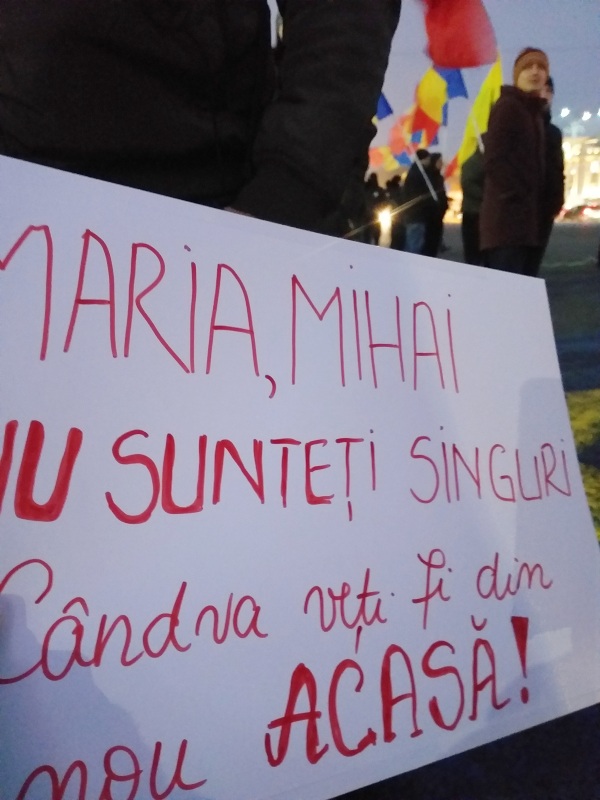 MARIA, MIHAI
NU SUNTEȚI SINGURI
Cândva veți fi din
nou ACASĂ!